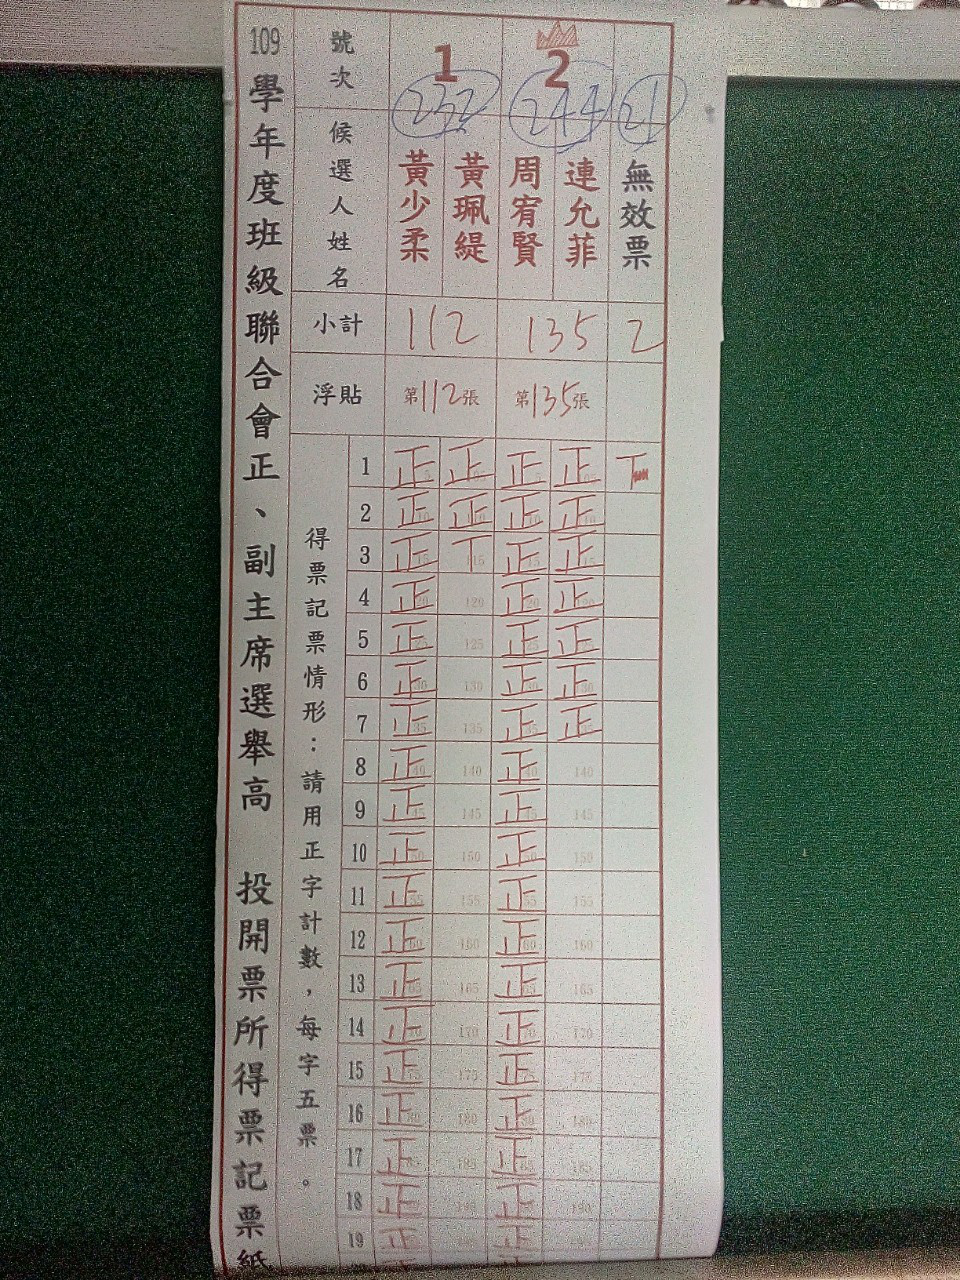 109學年度班級聯合會正、副主席選舉高 投開票所得票記票紙
號次 1 2
232 244 21
候選人姓名 黃少柔 黃珮緹 周宥賢 連允菲 無效票
小計 112 135 2
浮貼 第112張 第135張
得票記票情形：請用正字計數，每字五票。
1 正 正 正 正
2 正 正 正 正
3 正 丅 正 正
4 正 120 正 正
5 正 125 正 正
6 正 130 正 正
7 正 135 正 正
8 正 140 正 140
9 正 145 正 145
10 正 150 正 150
11 正 155 正 155
12 正 160 正 160
13 正 165 正 165
14 正 170 正 170
15 正 175 正 175
16 正 180 正 180
17 正 185 正 185
18 正 190 正 190
19 正 正